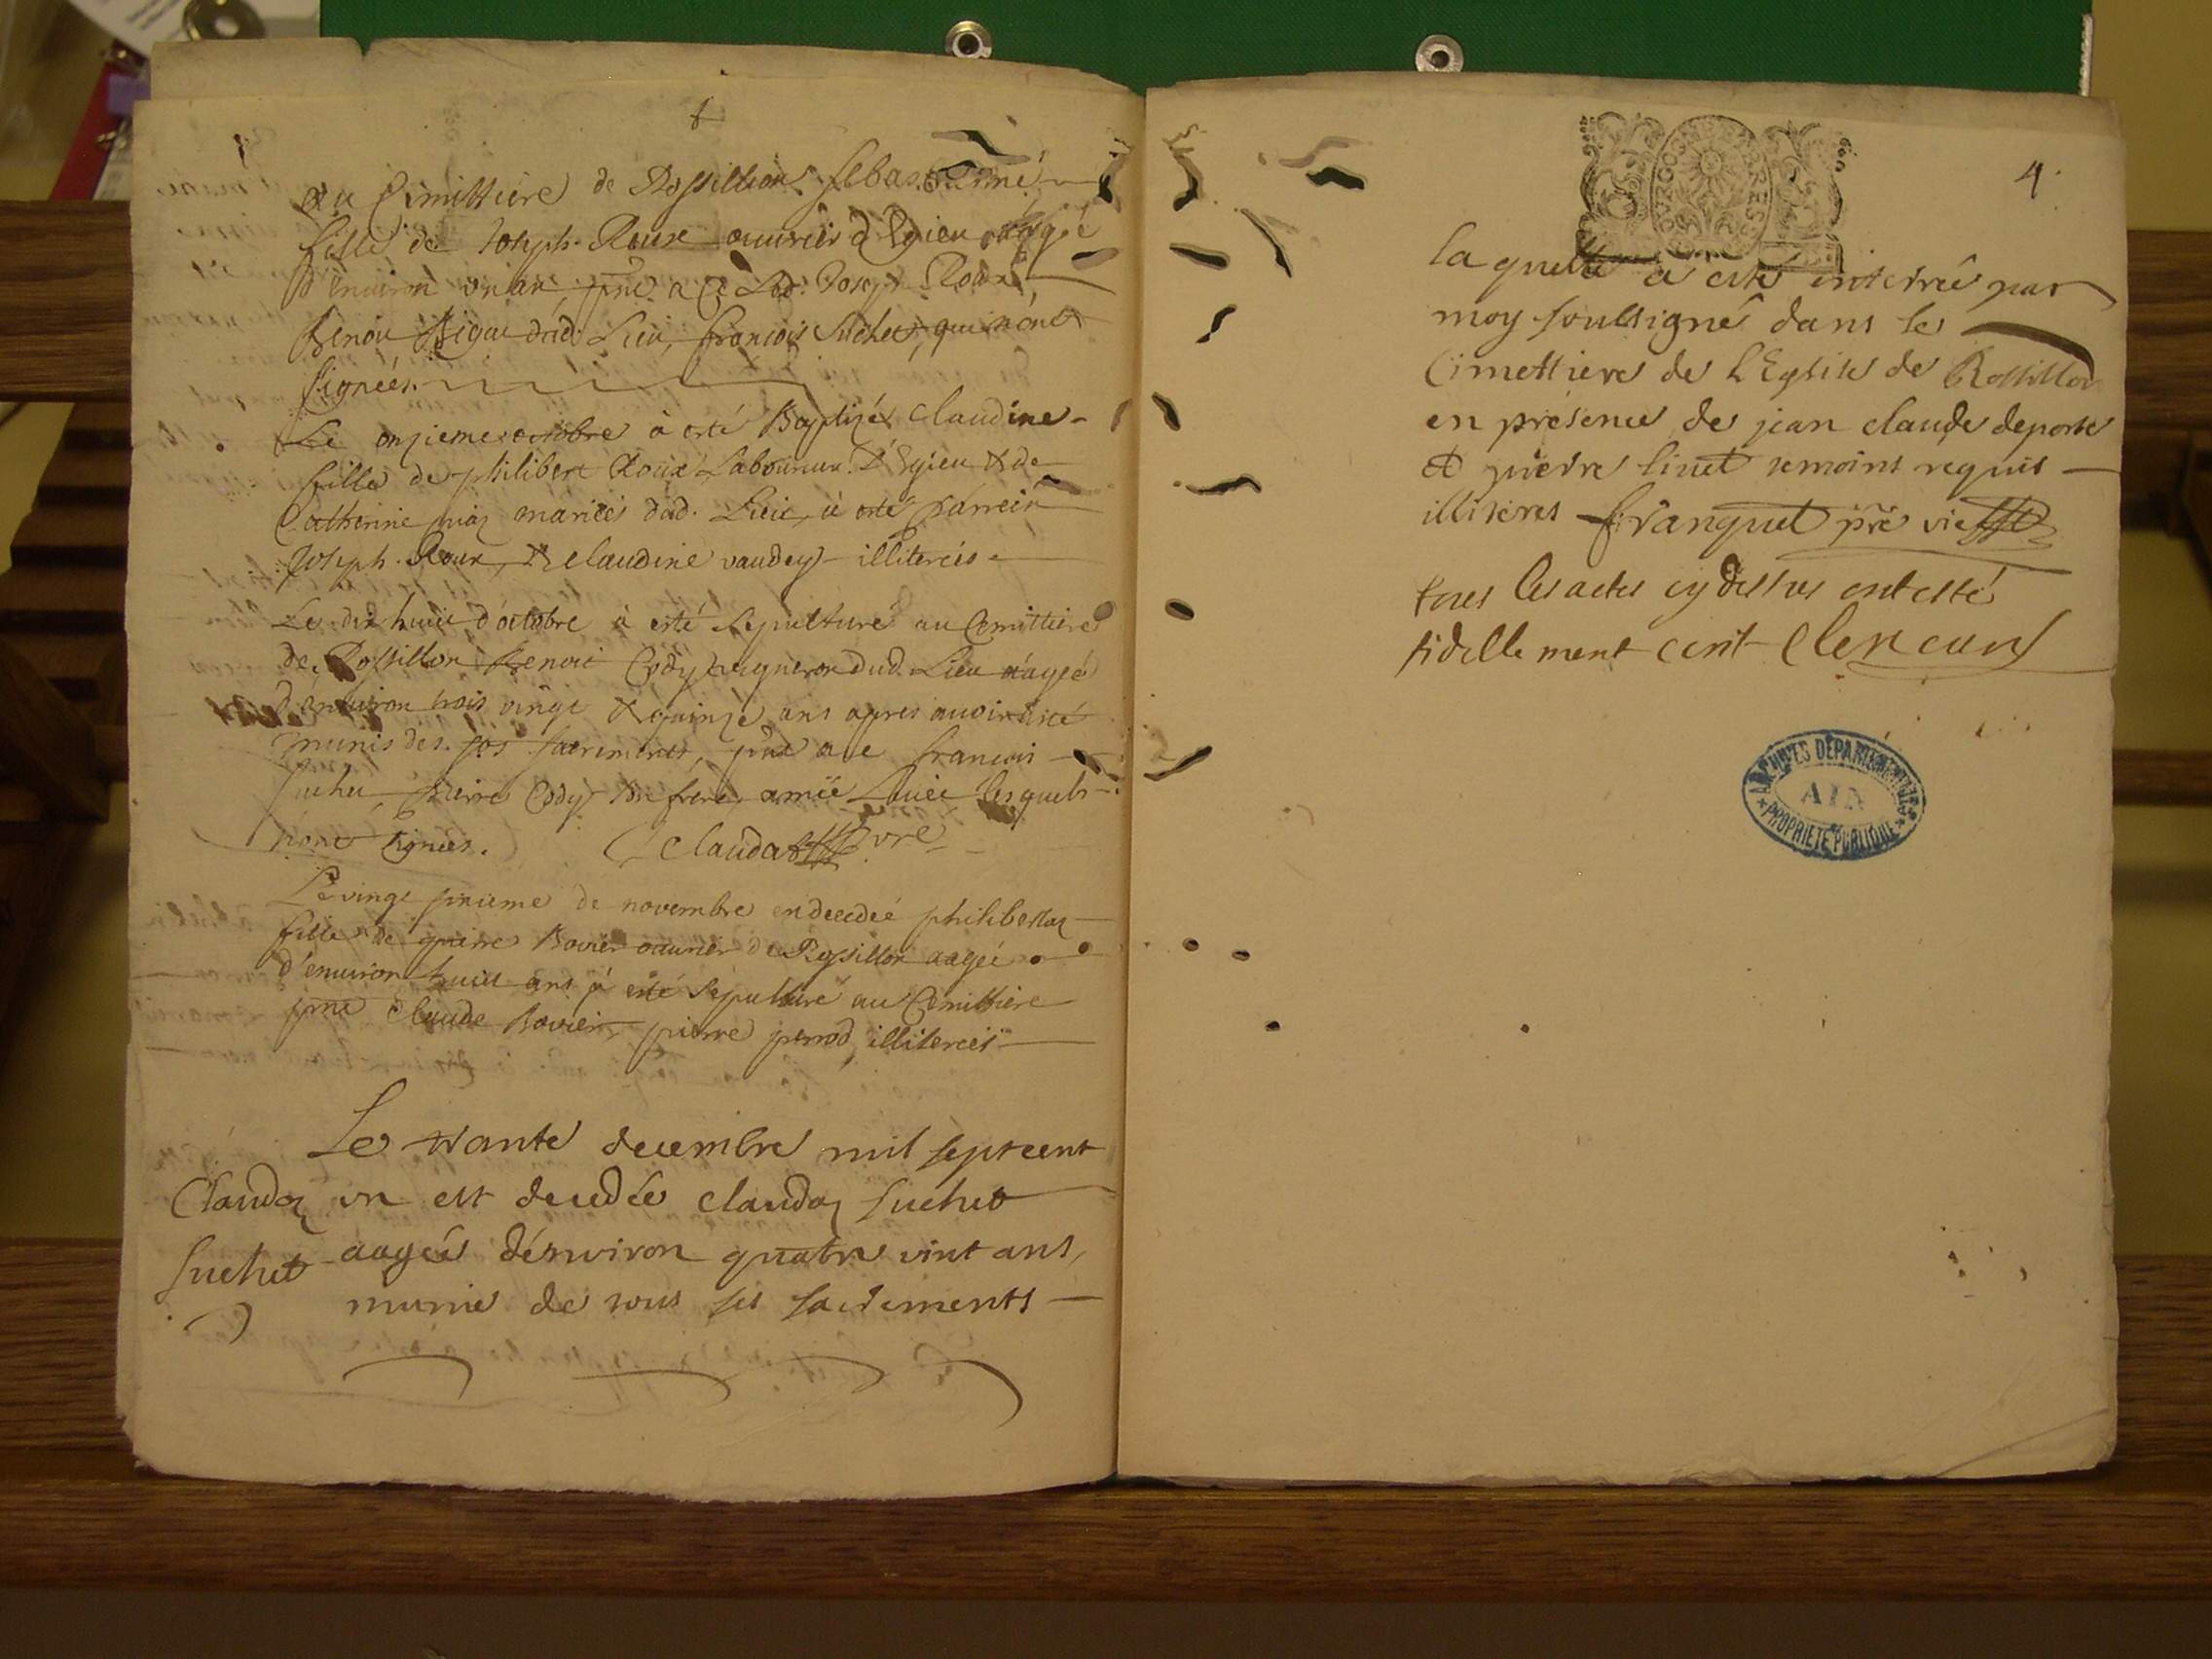 au Cimittiere de Rossillion Sebastienne
fille de Joseph Roux ouurier d'Egieu aagée
d'enuiron un an, pnt a ce Led. Joseph Roux
Benoit dud. Lieu, françois Suchet, qui n'ont
signées.
Le onzieme octobre à esté Baptizé Claudine
fille de philibert Roux Laboureur d'Egieu & de
Catherine mariées dud. Lieu, à esté parrein
Joseph Roux, & Claudine vaudey illiterées
Le dix huit d'octobre à esté sepulturé au Cimittiere
de Rossillon Benoit Cody vigneron dud. Lieu aagé
d'enuiron trois vingt & quinze ans apres auoir esté
munis des sacrements, pnt a ce françois
Suchet, pierre Cody son frere, lesquels
n'ont signées. Claudat vre
Le vingt de novembre en decedeé philiberta
fille de Bovier ouurier de Rossillon aagée
d'enuiron huit ans à esté sepulturé au Cimittiere
pnt Claude Bovier, pierre perrod, illiterées
Le trante decembre mil septcent
Clauda un est decedée clauda Suchet
Suchet aagée d'environ quatre vint ans,
munie de tous ses sacrements
4.
BOURG OS BRES
la quelle a esté enterrée par
moy soussigné dans le
Cimettiere de l'Eglise de Rossillon
en présence de jean claude deporte
& pierre linet temoins requis
illiteres franquet pre vic
tous les actes cy dessus ont esté
fidellement ecrit Clerc curé
ARCHIVES DÉPARTEMENTALES
AIN
PROPRIÉTÉ PUBLIQUE